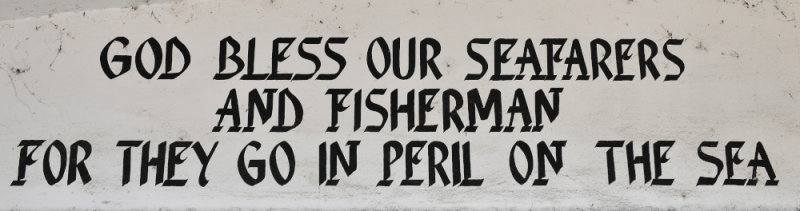 GOD BLESS OUR SEAFARERS
AND FISHERMAN
FOR THEY GO IN PERIL ON THE SEA